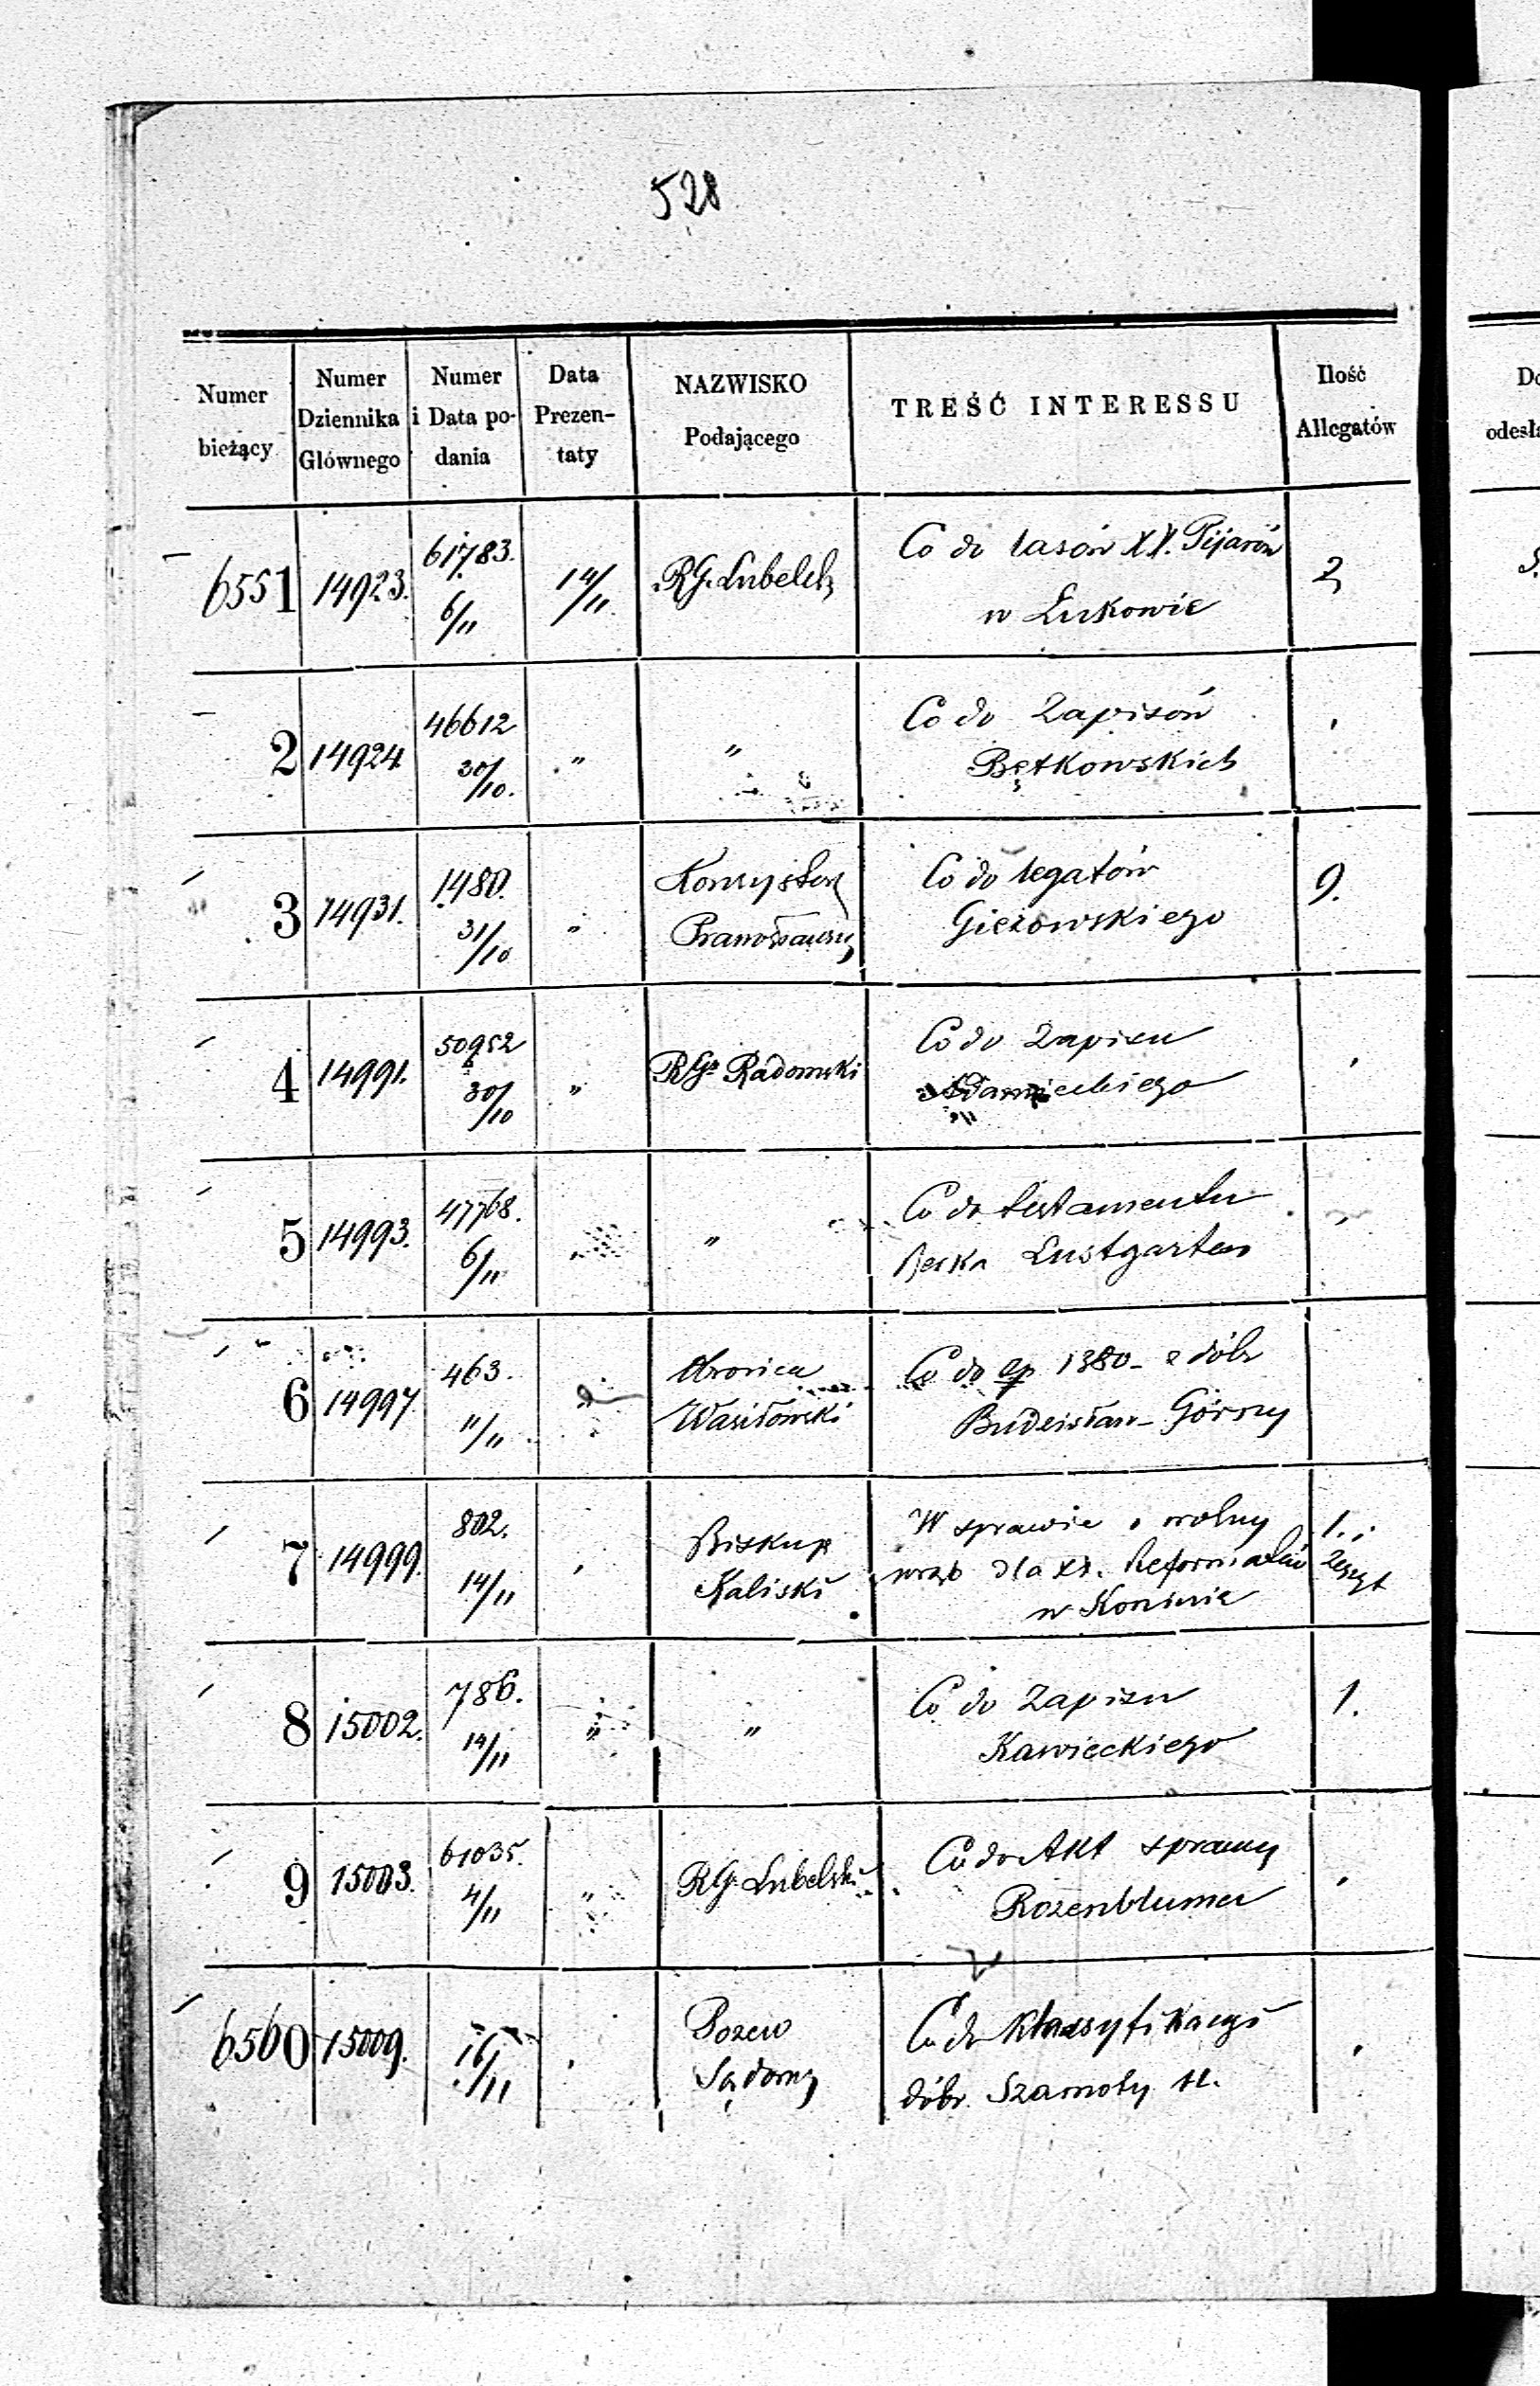 528
Numer bieżący
Numer Dziennika Głównego
Numer i Data podania
Data Prezentaty
NAZWISKO Podającego
TREŚĆ INTERESSU
Ilość Allegatów
6551 14923. 61783. 6/11 14/11 RG. Lubelsk Co do lasów XX. Pijarów
w Łukowie 2
2 14924 46612 30/10. " " Co do Zapisów
Bętkowskich
3 14931. 1480. 31/10 " Konsystorz Co do legatów
Gieżowskiego 9.
4 14991. 50952 30/10 " RGo Radomski Co do Zapisu
5 14993. 47768. 6/11 " " Co do testamentu
Berka Lustgarten
6 14997 463. 11/11 Co do 1380 - z dóbr
Budzisław - Górny
Wasiłowski
7 14999. 802. 14/11 Biskup
Kaliski W sprawie o wolny
wrąb dla XX. Reformatów
w Koninie 1.
Zeszyt
8 15002. 786. 14/11 " " Co do Zapisu
Kawieckiego 1.
9 15003. 61035. 4/11 " RG. Lubelski Co do Akt sprawy
Rozenbluma
6560 15009. 16/11 Pozew
Sądowy Co do Klassyfikacyi
dóbr Szamoty